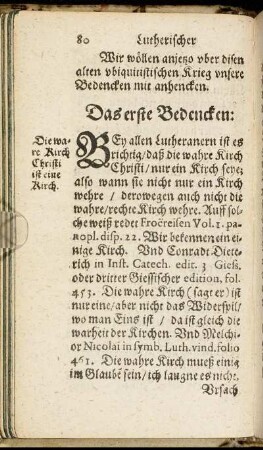 80 Lutherischer
Wir wöllen anjetzo vber disen
alten vbiquitistischen Krieg vnsere
Bedencken mit anhencken.
Das erste Bedencken:
Die wa-
re Kirch
Christi
ist eine
Kirch.
BEy allen Lutheranern ist es
richtig/daß die wahre Kirch
Christi/nur ein Kirch seye;
also wann sie nicht nur ein Kirch
wehre / derowegen auch nicht die
wahre/rechte Kirch wehre. Auff sol-
che weiß redet Froëreisen Vol. 1. pa-
nopl. disp. 22. Wir bekennen ein ei-
nige Kirch. Vnd Conradt Diete-
rich in Inst. Catech. edit. 3 Gieß.
oder dritter Giessischer edition, fol.
453. Die wahre Kirch (sagt er) ist
nur eine/aber nicht das Widerspil/
wo man Eins ist / da ist gleich die
warheit der Kirchen. Vnd Melchi-
or Nicolai in symb. Luth. vind. folio
461. Die wahre Kirch mueß einig
im Glaubē sein/ich laugne es nicht.
Vrsach